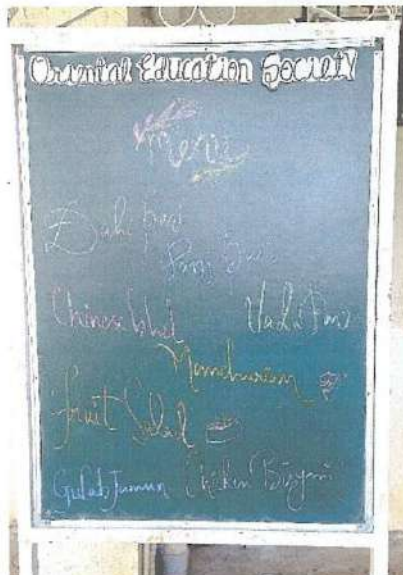 Oriental Education Society
Menu
Dahi puri
Pani Puri
Chinese bhel
Vada Pav
Fruit Salad
Gulab Jamun
Chicken Biryani